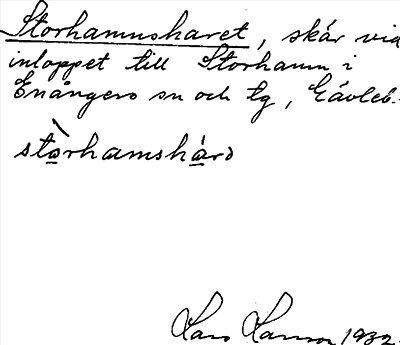 Storhamnsharet, skär vid
inloppet till Storhamn i
Enångers sn och tg, Gävleb.
stòrhamshárə
Lars Larsson 1932